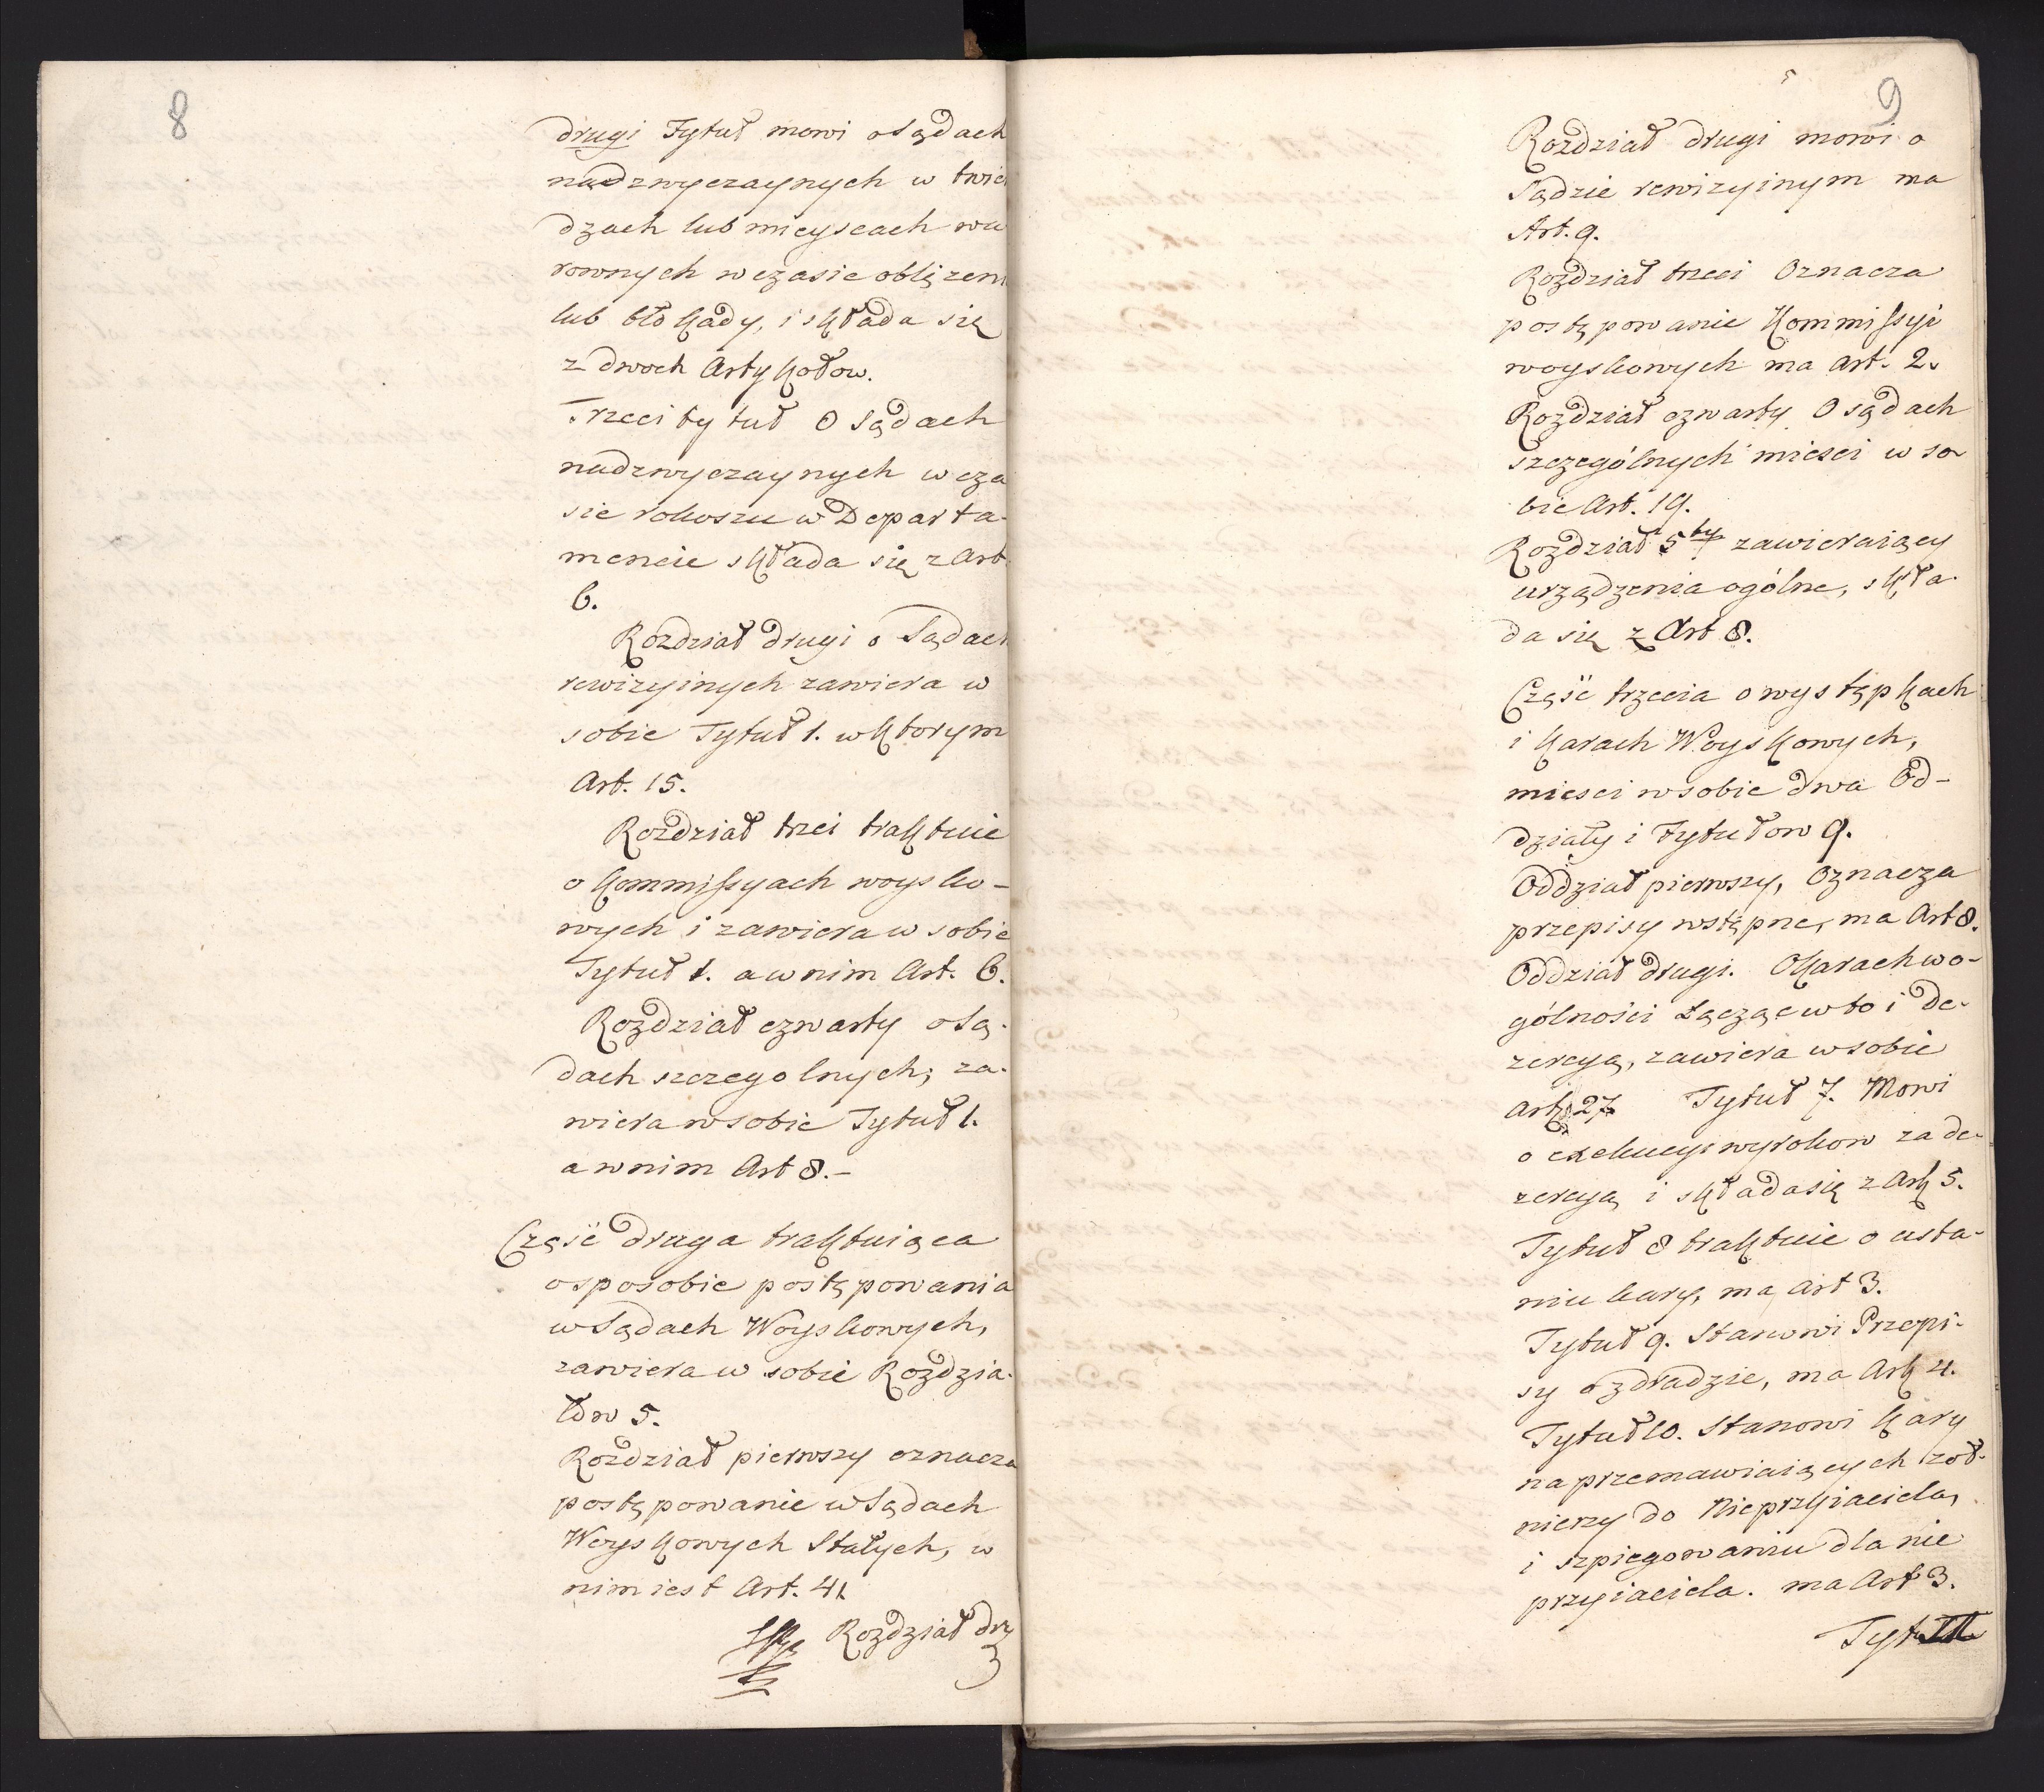 8
drugi Tytuł mowi o Sądach
nadzwyczaynych w twier
dzach lub mieyscach wa
rownych w czasie oblężeni
lub blokady, i składa się
z dwoch Artykołow.
Trzeci tytuł O Sądach
nadzwyczaynych w cza
sie rokoszu w Departa-
mencie składa się z Art
6.
Rozdział drugi o Sądach
rewizyinych zawiera w
sobie Tytuł 1. w ktorym
Art. 15.
Rozdział trzci traktuie
o kommissyach woysko-
wych i zawiera w sobie
Tytuł 1. a w nim Art. 6.
Rozdział czwarty o Są-
dach szczegolnych; za-
wiera w sobie Tytuł 1.
a w nim Art 8.-
Część druga traktuiąca
o sposobie postępowania
w Sądach Woyskowych,
zawiera w sobie Rozdzia-
łow 5.
Rozdział pierwszy oznacza
postępowanie w Sądach
Woyskowych Stałych, w
nim iest Art. 41.
Rozdział dru
5
9
Rozdział drugi mowi o
Sądzie rewizyinym ma
Art. 9.
Rozdział trzeci Oznacza
postępowanie Kommissyi
woyskowych ma Art. 2.
Rozdział czwarty O sądach
szczególnych miesci w so
bie Art. 19.
Rozdział 5ty zawieraiący
urządzenia ogólne, skła-
da się z Art 8.
Część trzecia o występkach
i karach Woyskowych,
miesci w sobie dwa Od-
działy i Tytułow 9.
Oddział pierwszy, Oznacza
przepisy wstępne, ma Art 8.
Oddział drugi. O Karach wo-
gólności Łącząc w to i de-
zercyą, zawiera w sobie
artk. 27. Tytuł 7. Mowi
o exekucyi wyrokow za de-
zercyą i składa się z Artk 5.
Tytuł 8 traktuie o usta-
niu kary, ma Art 3.
Tytuł 9. Stanowi Przepi-
sy o zdradzie, ma Artk 4.
Tytuł 10. Stanowi kary
na przemawiaiących żoł-
nierzy do Nieprzyiaciela,
i szpiegowaniu dla nie
przyiaciela. ma Art 3.
Tytuł